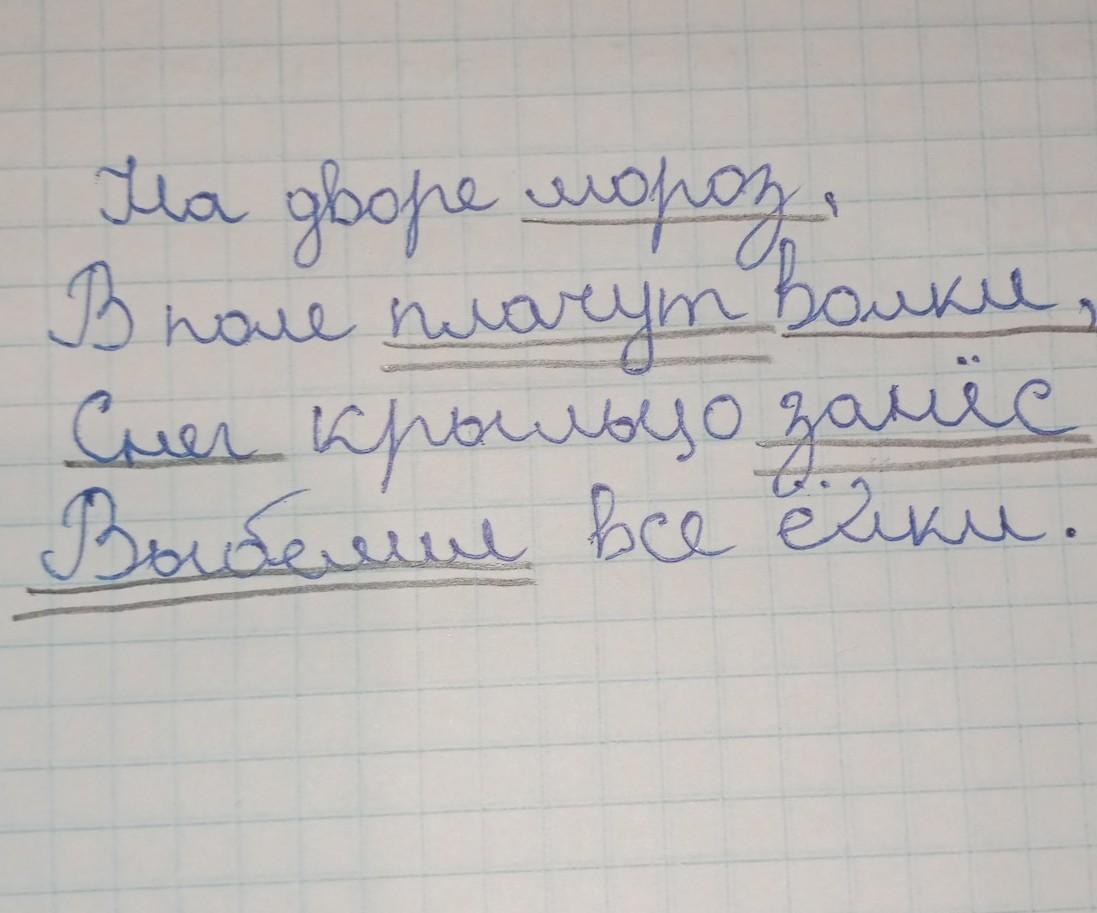 На дворе мороз,
В поле плачут волки,
Снег крыльцо занёс
Выбелил все ёлки.